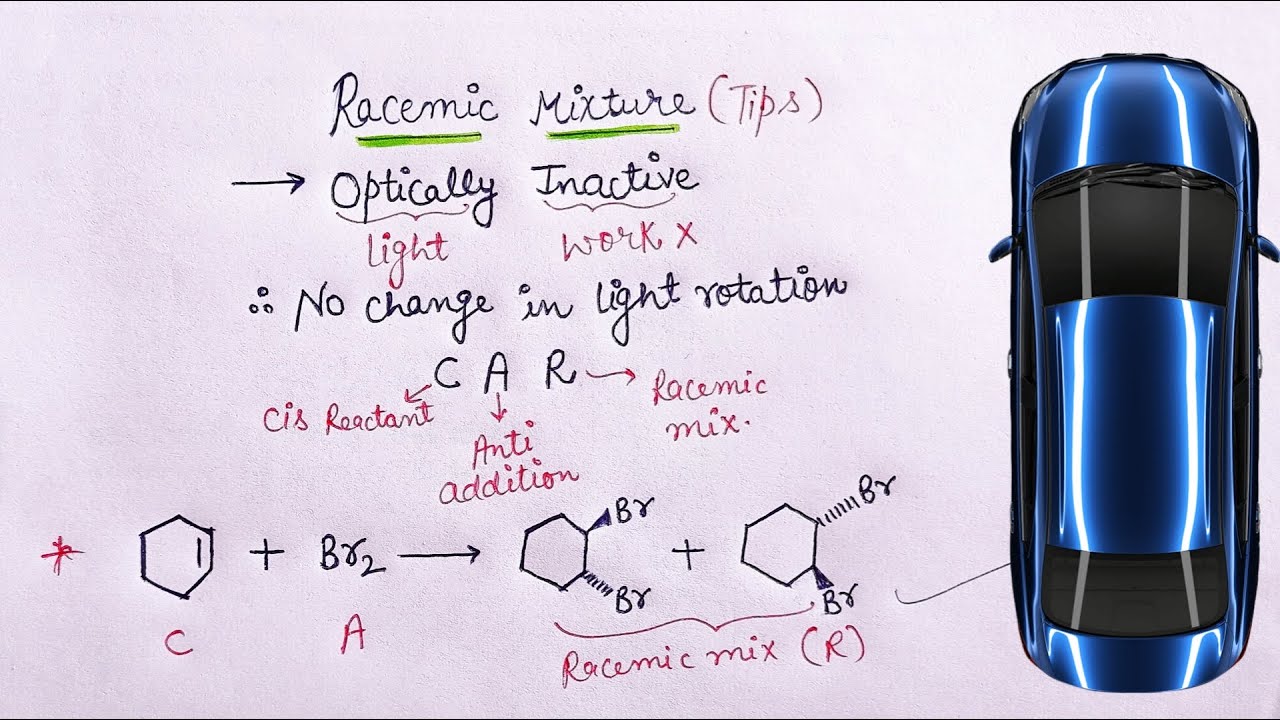 Racemic Mixture (Tips)
→ Optically Inactive
light work x
∴ No change in light rotation
C A R → Racemic mix.
Cis Reactant
Anti addition
* + Br2 → Br Br + Br Br
C A Racemic mix (R)